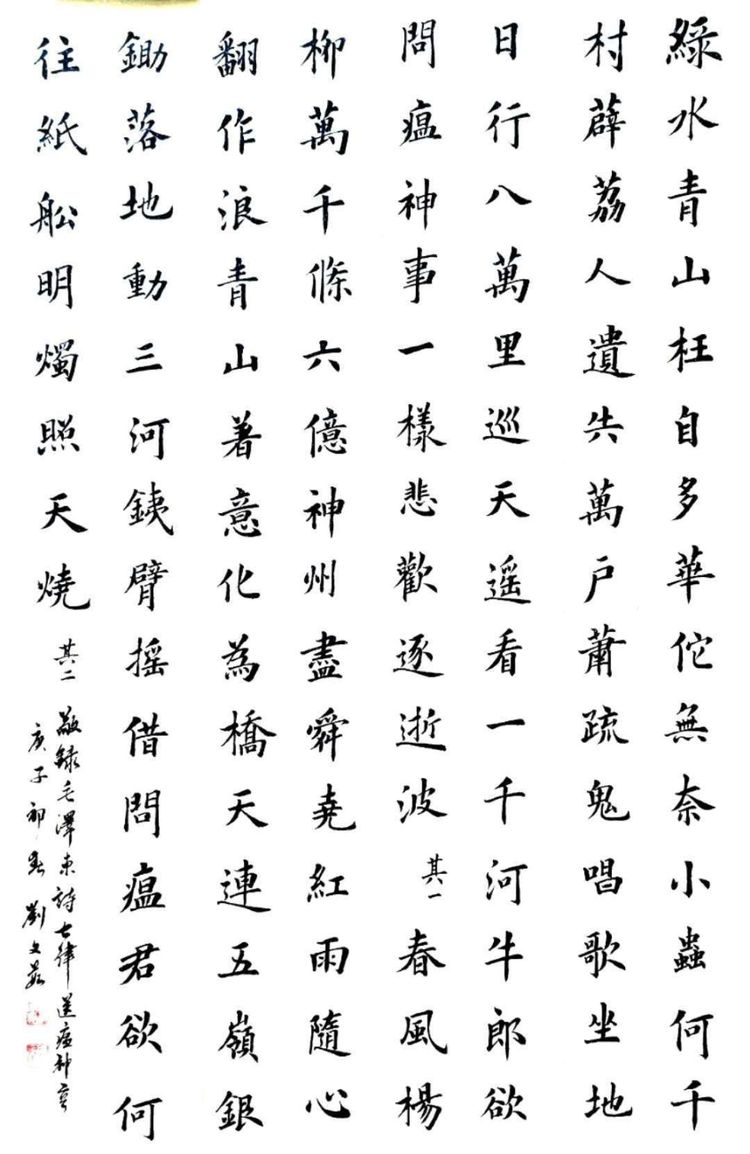 綠水青山枉自多華佗無奈小蟲何千
村薜荔人遺失萬戶蕭疏鬼唱歌坐地
日行八萬里巡天遥看一千河牛郎欲
問瘟神事一樣悲歡逐逝波 其一 春風楊
柳萬千條六億神州盡舜堯紅雨隨心
翻作浪青山著意化為橋天連五嶺銀
鋤落地動三河銕臂摇借問瘟君欲何
往紙舩明燭照天燒 其二
敬録毛澤東詩七律送瘟神
庚子初春 劉文